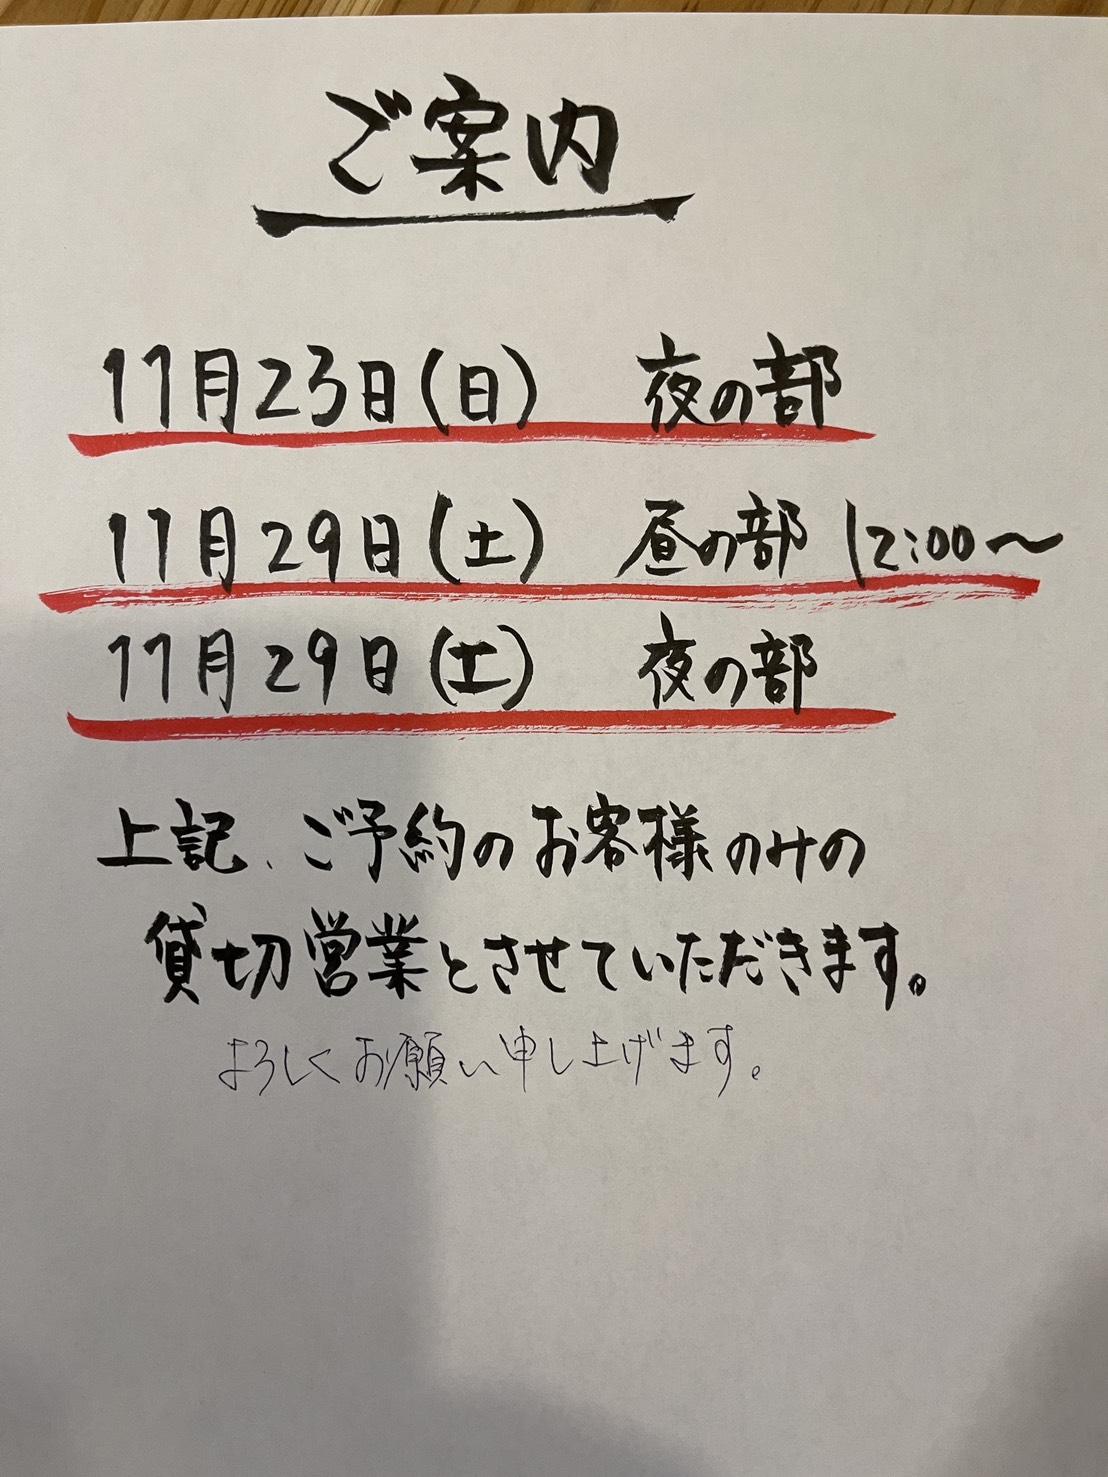 ご案内
11月23日(日) 夜の部
11月29日(土) 昼の部 12:00〜
11月29日(土) 夜の部
上記、ご予約のお客様のみの
貸切営業とさせていただきます。
よろしくお願い申し上げます。